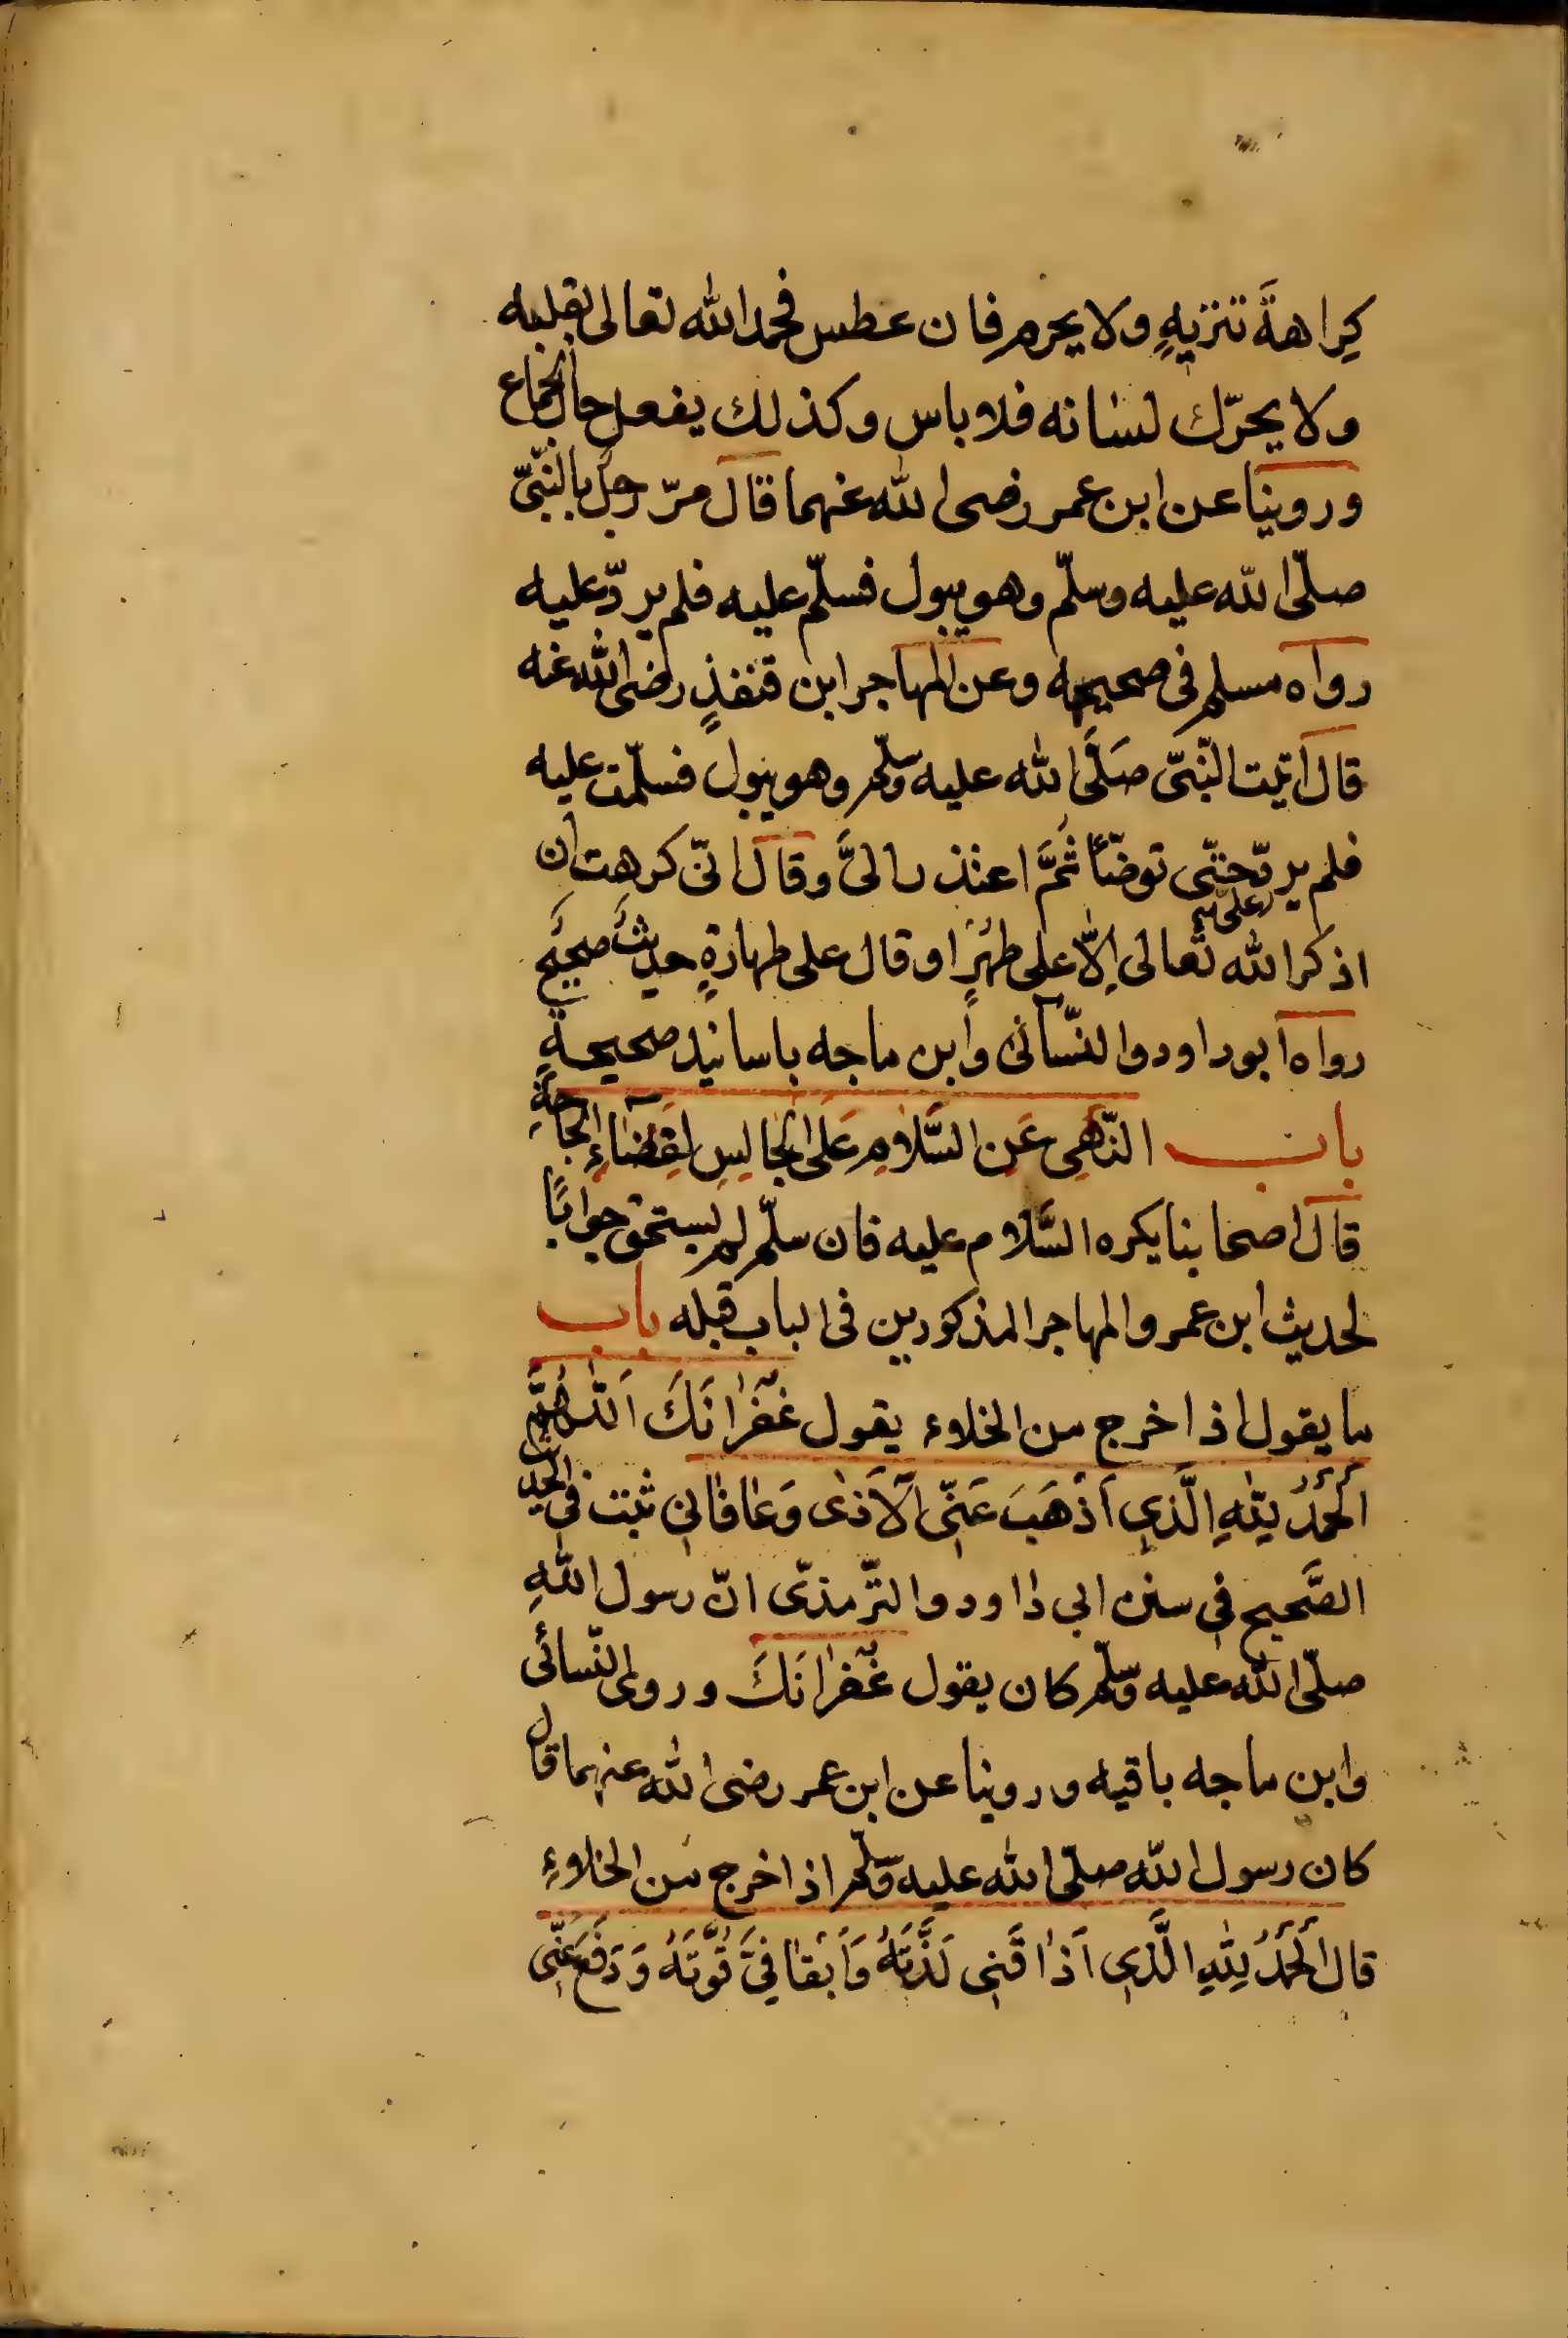 كِراهةَ تنزيهٍ ولا يحرم فان عطس فحمد الله تعالى بقلبه
ولا يحرّك لسانه فلا باس وكذلك يفعل حال الجماع
وروينا عن ابن عمر رضى الله عنهما قال مرّ رجل بالنّبىّ
صلّى الله عليه وسلّم وهو يبول فسلّم عليه فلم يردّ عليه
رواه مسلم فى صحيحه وعن المهاجر ابن قنفذٍ رضى الله عنه
قال اتيت النّبىّ صَلَّى الله عليه وسلّم وهو يبول فسلّمت عليه
فلم يردّ حتّى توضّأ ثُمَّ اعتذر الىَّ وقال انّى كرهت ان
علىّ
اذكر الله تعالى اِلاّ على طهْرٍ او قال على طهارةٍ حديثٌ صحيحٌ
رواه ابو داود والنّسآئى وابن ماجه باسانيد صحيحةٍ
باب النّهىِ عَن السَّلاٰمِ عَلَى الجٰالِسِ لِقَضٰآءِ الحٰاجَةِ
قال اصحابنا يكره السَّلام عليه فان سلّم لم يستحق جوابًا
لحديث ابن عمر والمهاجر المذكورين فى الباب قبله باب
ما يقول اذا خرج من الخلاء يقول غُفْرٰانَكَ اَللّٰهُمَّ
اَلْحَمْدُ لِلّٰهِ الَّذِى اَذْهَبَ عَنِّى اْلاَذٰى وَعٰافٰانِى ثبت فى الحديث
الصَّحيح فى سنن ابى داود والتّرمذىّ انّ رسول اللهِ
صلّى الله عليه وسلّم كان يقول غُفْرٰانَكَ وروى النّسائى
وابن ماجه باقيه وروينا عن ابن عمر رضى الله عنهما قال
كان رسول الله صلّى الله عليه وسلّم اذا خرج من الخلاءِ
قال اَلْحَمْدُ لِلّٰهِ الَّذِى اَذٰاقَنِى لَذَّتَهُ وَاَبْقٰا فِىَّ قُوَّتَهُ وَدَفَعَ عَنِّى